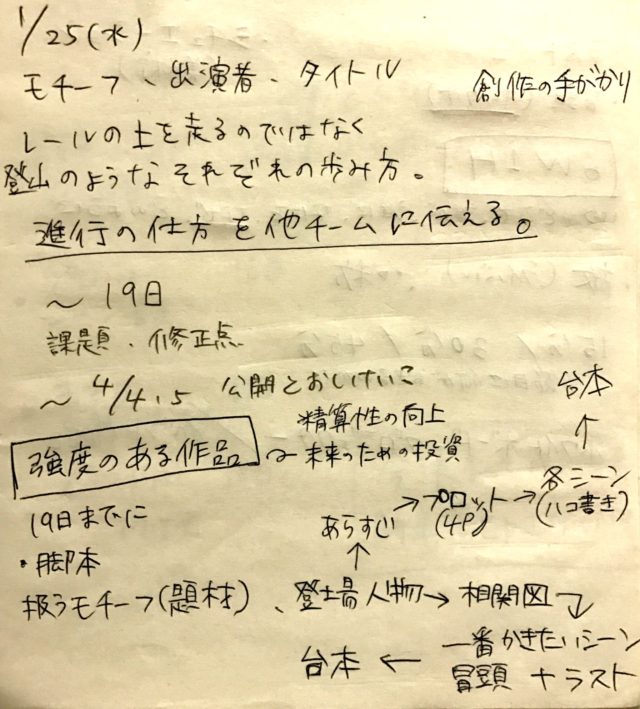 1/25(水)
モチーフ、出演者、タイトル
創作の手がかり
レールの上を走るのではなく
登山のようなそれぞれの歩み方。
進行の仕方を他チームに伝える。
～19日
課題、修正点
～4/4.5 公開とおしけいこ
強度のある作品
精算性の向上
未来のための投資
19日までに
・脚本
扱うモチーフ(題材)、登場人物→相関図
↑
あらすじ→プロット→各シーン
(4P) (ハコ書き)
↑
台本
一番かきたいシーン
冒頭+ラスト
台本←